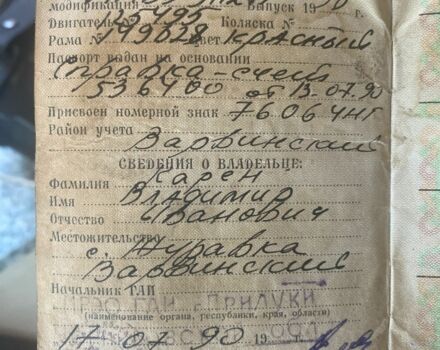 модификация Выпуск 19 90 г.
Двигатель № 25195 Коляска №
Рама № 199028 Цвет красный
Паспорт выдан на основании
справка-счет
536400 от 13.07.90
Присвоен номерной знак 7606 ЧНГ
Район учета
Варвинский
СВЕДЕНИЯ О ВЛАДЕЛЬЦЕ:
Фамилия Карен
Имя Владимир
Отчество Иванович
Местожительство с. Журавка
Варвинский
Начальник ГАИ
РЭО ГАИ г. ПРИЛУКИ
(наименование органа, республики, края, области)
17 07 90 19